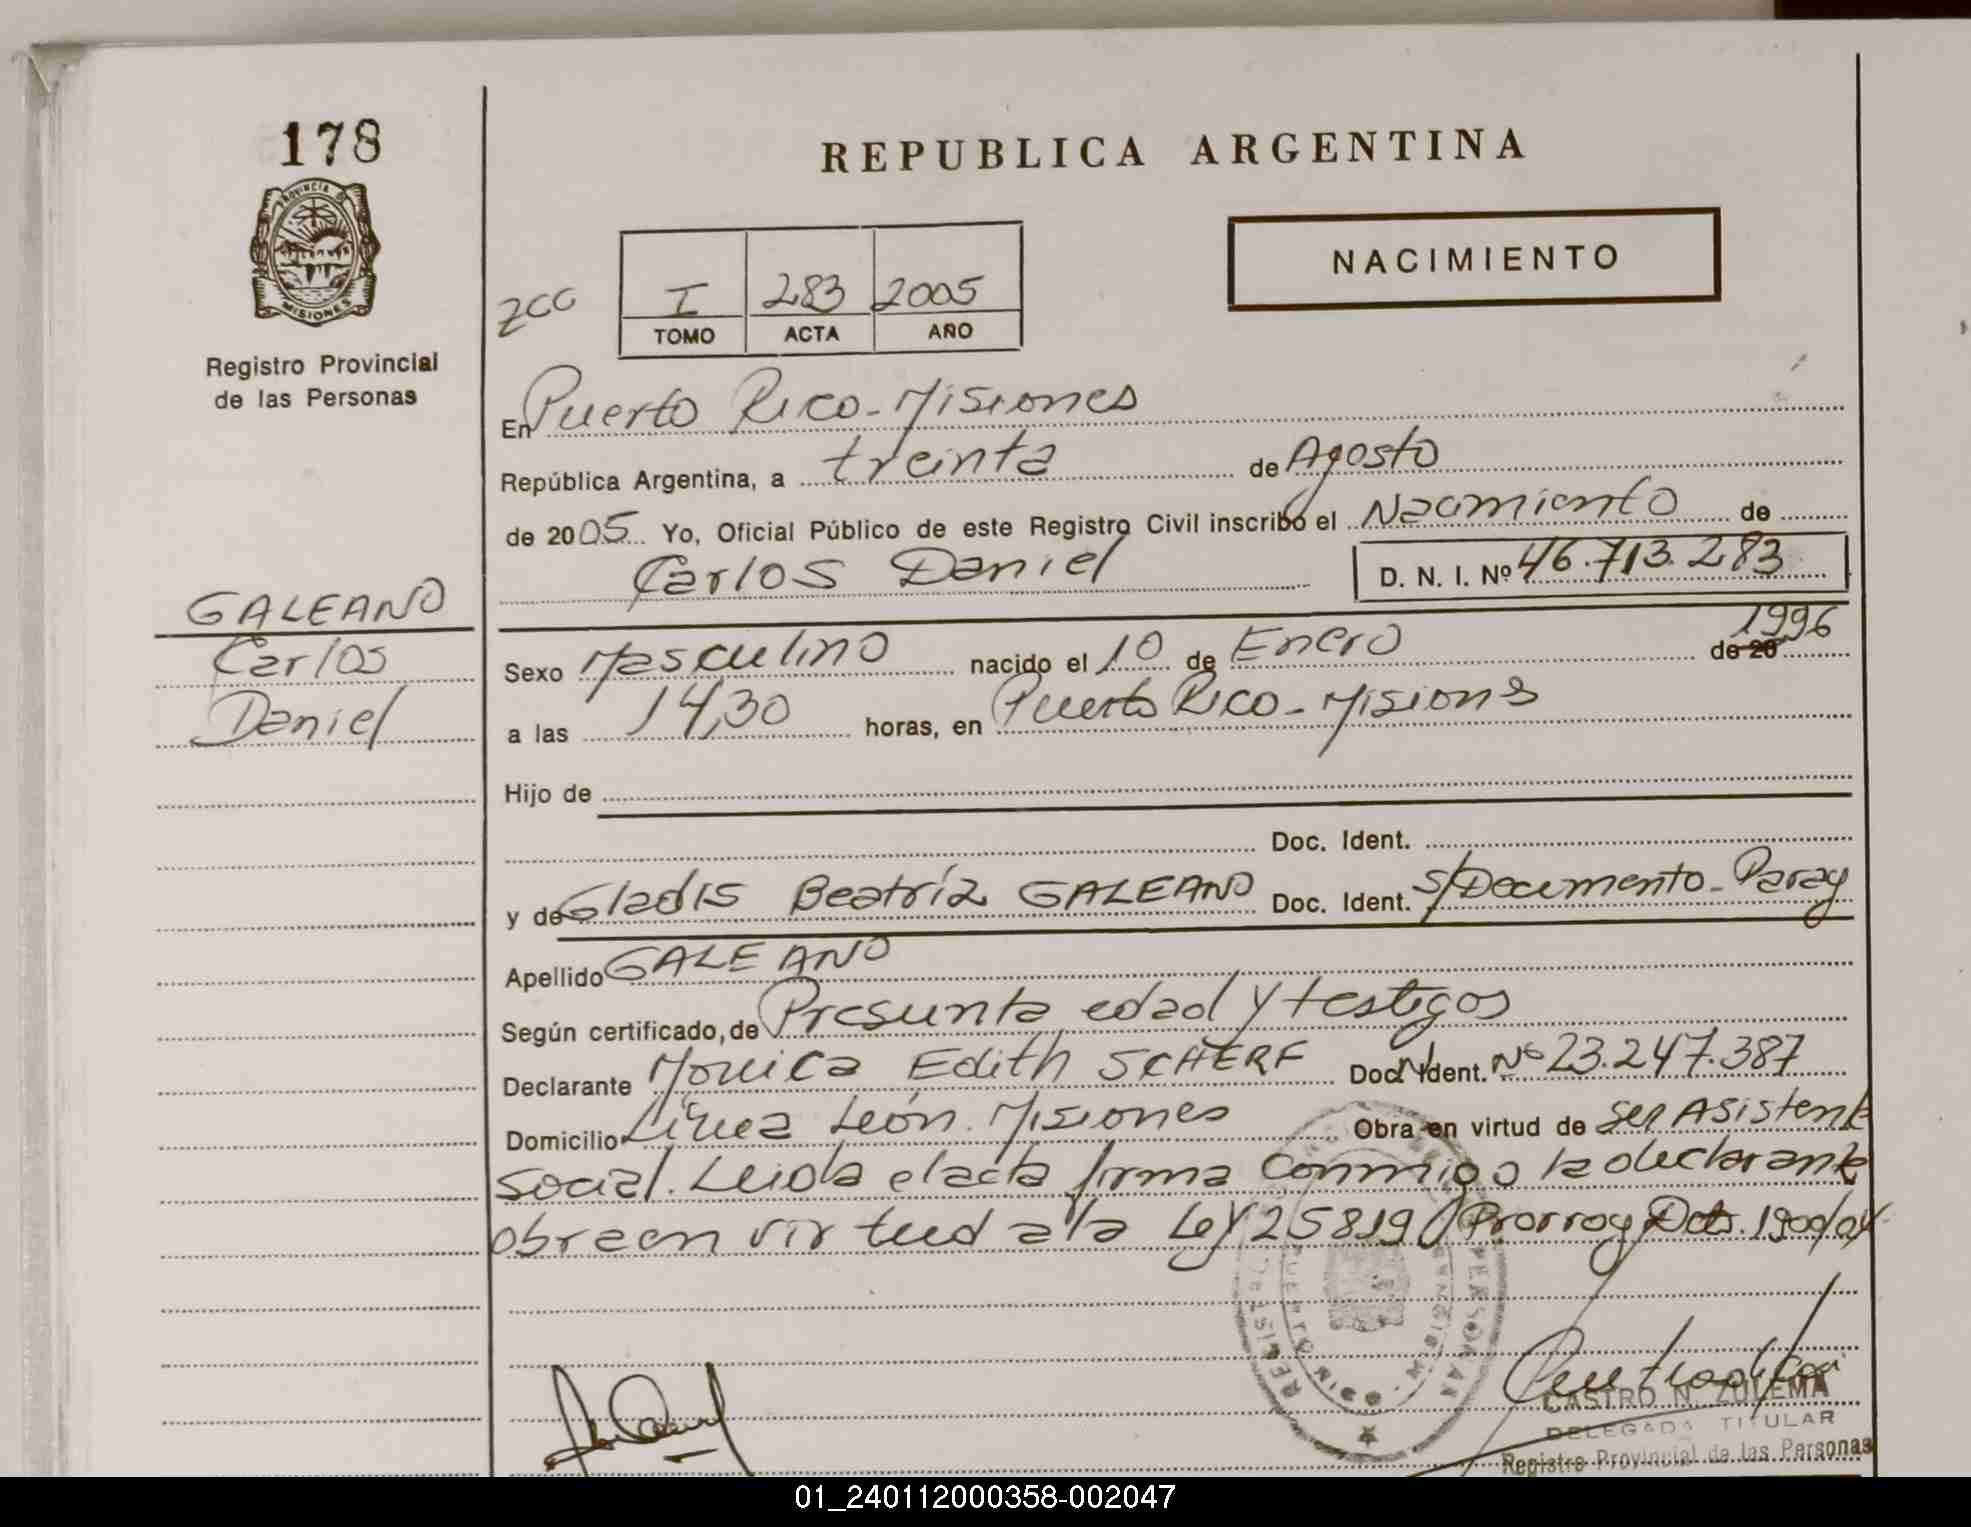 178
REPUBLICA ARGENTINA
PROVINCIA DE
MISIONES
NACIMIENTO
I 283 2005
TOMO ACTA AÑO
Registro Provincial
de las Personas
En Puerto Rico - Misiones
República Argentina, a treinta de Agosto
de 2005 Yo, Oficial Público de este Registro Civil inscribo el Nacimiento de
Carlos Daniel D. N. I. Nº 46.713.283
GALEANO
Carlos
Daniel
Sexo Masculino nacido el 10 de Enero de 20 1996
a las 14,30 horas, en Puerto Rico - Misiones
Hijo de
Doc. Ident.
y de Gladis Beatriz GALEANO Doc. Ident. S/Documento - Parag
Apellido GALEANO
Según certificado, de Presunta edad y testigos
Declarante Monica Edith SCHERF Doc. Ident. Nº 23.247.387
Domicilio Línea León. Misiones Obra en virtud de ser Asistente
social. Leida el acta firma conmigo la declarante
obra en virtud a la Ley 25819 Prorrog Dcto. 1900/04
CASTRO N. ZULEMA
DELEGADA TITULAR
Registro Provincial de las Personas
01_240112000358-002047